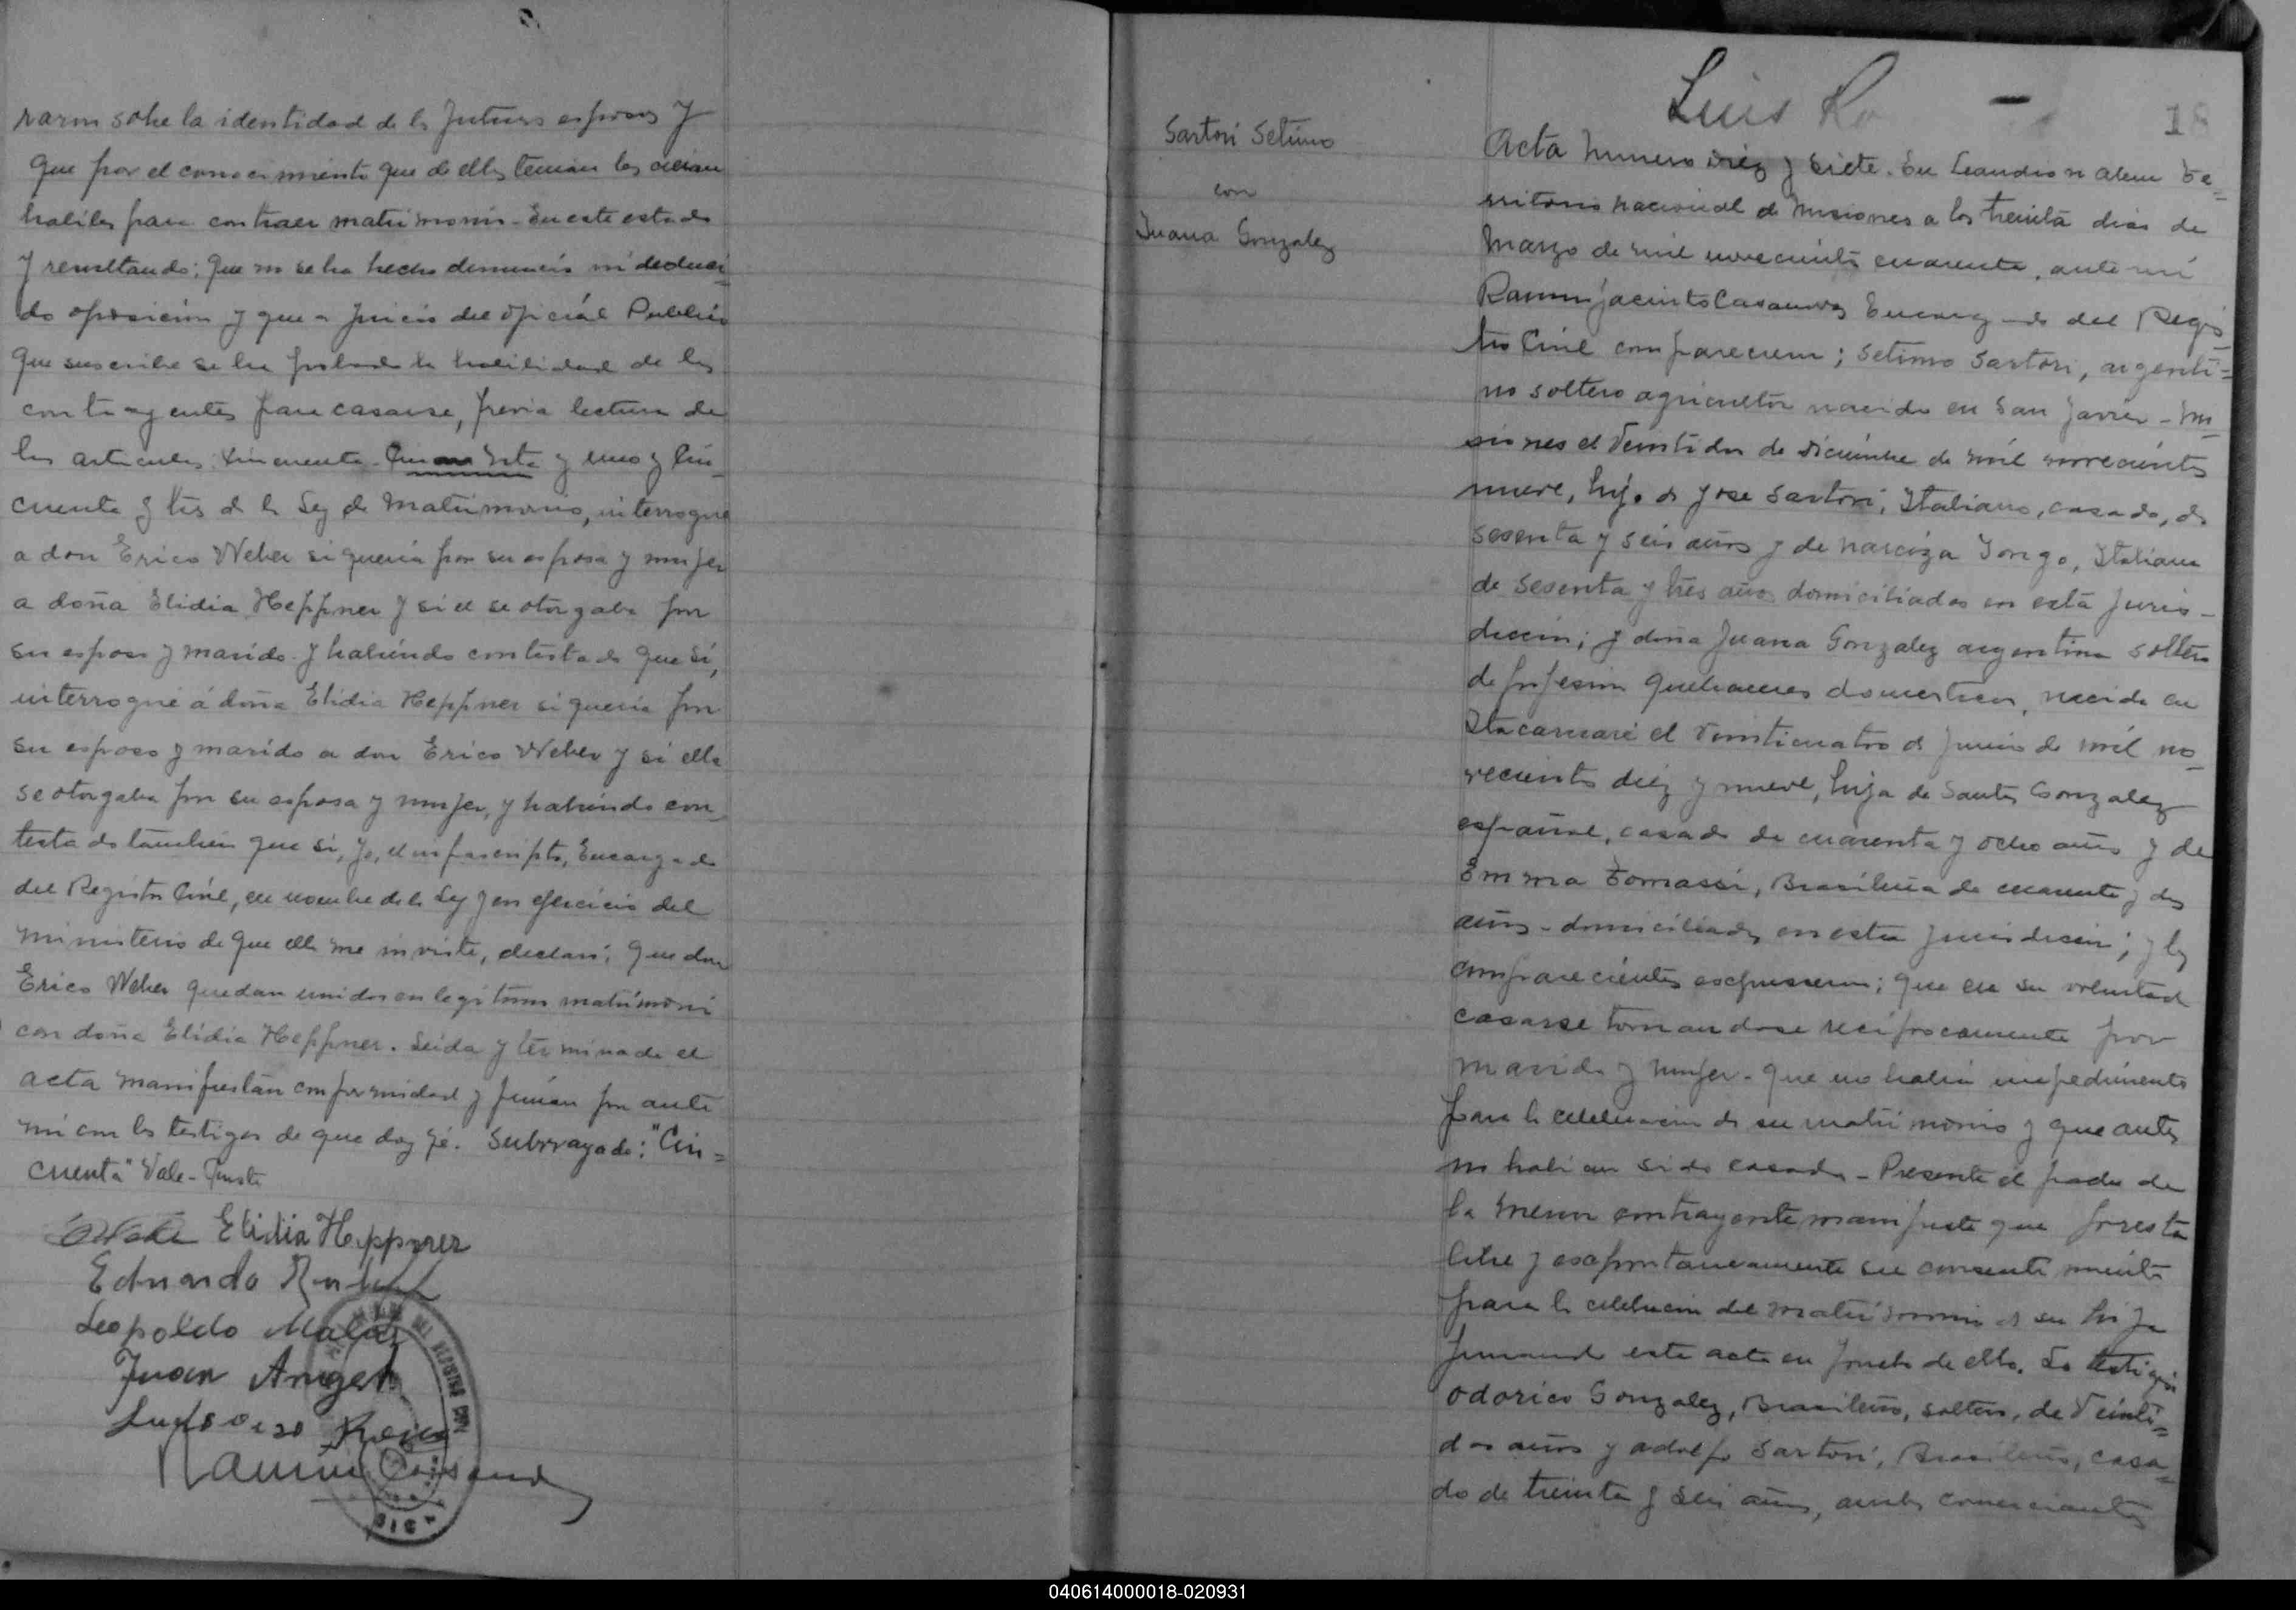 raron sobre la identidad de los futuros esposos y
que por el conocimiento que de ellos tenian los creian
habiles para contraer matrimonio - En este estado
y resultando; que no se ha hecho denuncia ni deduci-
do oposicion y que a juicio del oficial Publico
que suscribe se ha probado la habilidad de los
contrayentes para casarse, previa lectura de
los articulos; cincuenta - y uno y Cin-
cuenta y tres de la Ley de Matrimonio, interrogue
a don Erico Weber si queria por su esposa y mujer
a doña Elidia Heppner y si el se otorgaba por
su esposo y marido y habiendo contestado que si,
interrogué á doña Elidia Heppner si queria por
su esposo y marido a don Erico Weber y si ella
se otorgaba por su esposa y mujer, y habiendo con-
testado tambien que si, yo, el infrascripto, Encargado
del Registro Civil, en nombre de la Ley y en ejercicio del
ministerio de que ella me inviste, declaré; que don
Erico Weber quedan unidos en legitimo matrimonio
con doña Elidia Heppner. Leida y terminada el
acta manifiestan conformidad y firman por ante
mi con los testigos de que doy fé. Subrrayado: "Cin=
cuenta" Vale -
Elidia Heppner
Eduardo
Leopoldo
Juan Angel
Ramon Casanova
Luis Ro
18
Sartori Setimo
con
Juana Gonzalez
Acta Numero Diez y siete. En Leandro N Alem Te=
rritorio nacional de Misiones a los treinta dias de
Marzo de mil novecientos cuarenta, ante mi
Ramon Jacinto Casanova Encargado del Regis
tro Civil comparecieron; Setimo Sartori, argenti=
no soltero agricultor nacido en San Javier - Mi-
siones el Veintidos de Diciembre de mil novecientos
nueve, hijo de Jose Sartori, Italiano, casado, de
sesenta y seis años y de Narciza Iongo, Italiana
de sesenta y tres años domiciliados en esta juris-
diccion; y doña Juana Gonzalez argentina soltera
de profesion quehaceres domesticos, nacida en
Itacaruaré el veinticuatro de Junio de mil no-
vecientos diez y nueve, hija de Santos Gonzalez
español, casado de cuarenta y ocho años y de
Emma Tomassi, Brasileña de cuarenta y dos
años - domiciliados en esta jurisdiccion; y los
comparecientes expusieron; que era su voluntad
casarse tomandose reciprocamente por
marido y mujer - que no habia impedimento
para la celebracion de su matrimonio y que antes
no habian sido casados - Presente el padre de
la menor contrayente manifiesta que presta
libre y espontaneamente su consentimiento
para la celebracion del matrimonio de su hija
firmando este acta en prueba de ello. Los testigos
Odorico Gonzalez, Brasileño, soltero, de Veinti=
dos años y Adolfo Sartori, Brasileño, casa=
do de treinta y seis años, ambos comerciantes
040614000018-020931